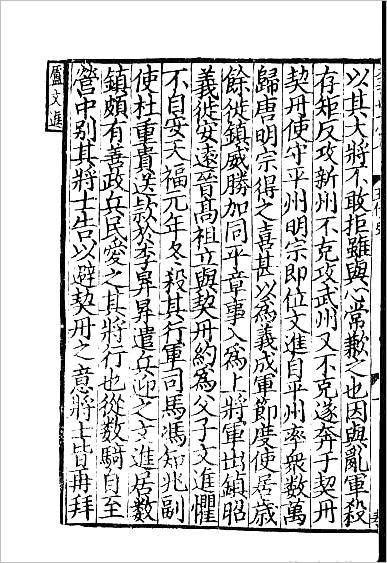 以其大將不敢拒雖與心常歉之也因與亂軍殺
存矩反攻新州不克攻武州又不克遂奔于契丹
契丹使守平州明宗即位文進自平州率衆數萬
歸唐明宗得之喜甚以為義成軍節度使居歳
餘徙鎮威勝加同平章事入為上將軍出鎮昭
義徙安遠晉髙祖立與契丹約為父子文進懼
不自安天福元年冬殺其行軍司馬馮知兆副
使杜重貴送欵於李昪昪遣兵迎之文進居數
鎮頗有善政兵民愛之其將行也從數騎自至
營中别其將士告以避契丹之意將士皆再拜
盧文進